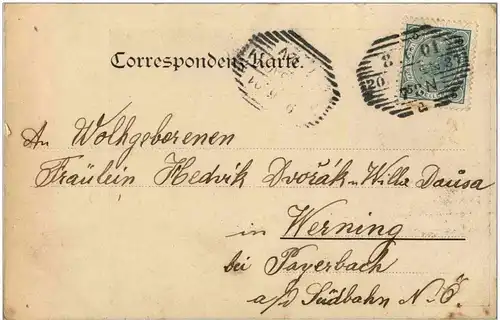 Correspondenz-Karte.
An Wolhgeborenen
Fräulein Hedvik Dvořák u. Willa Dausa
in Werning
bei Payerbach
a/d Südbahn N. Ö.